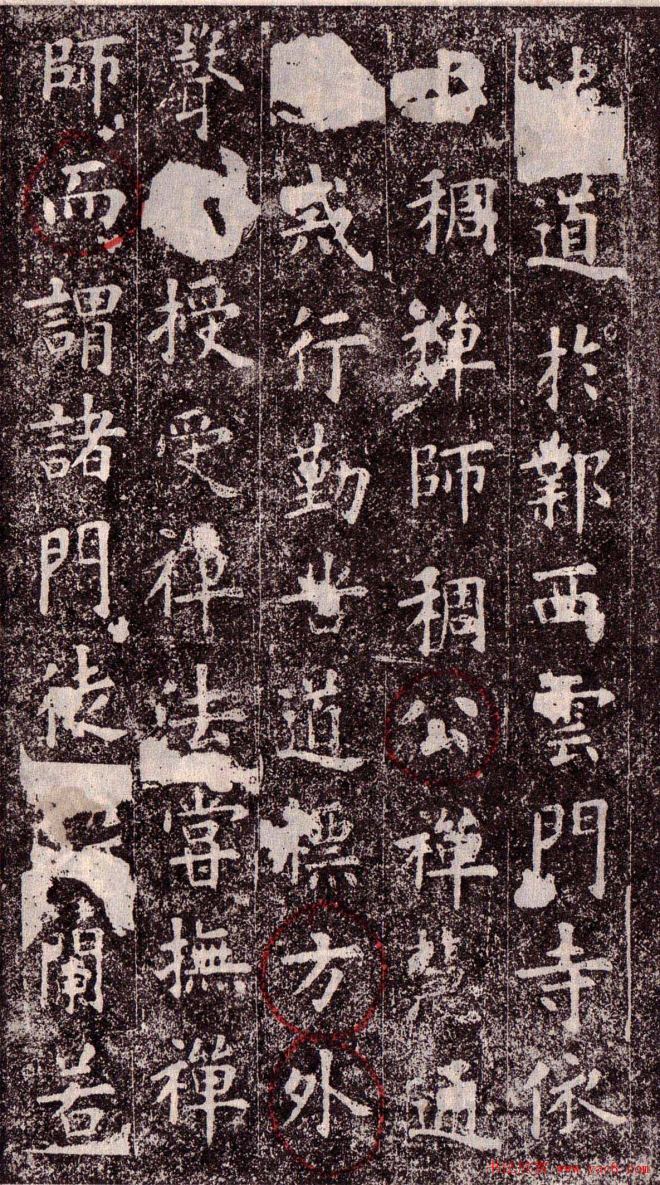 道於鄴西雲門寺依
稠禪師稠公禪慧通
戒行勤苦道標方外
聲授受禪法嘗撫禪
師而謂諸門徒蘭若